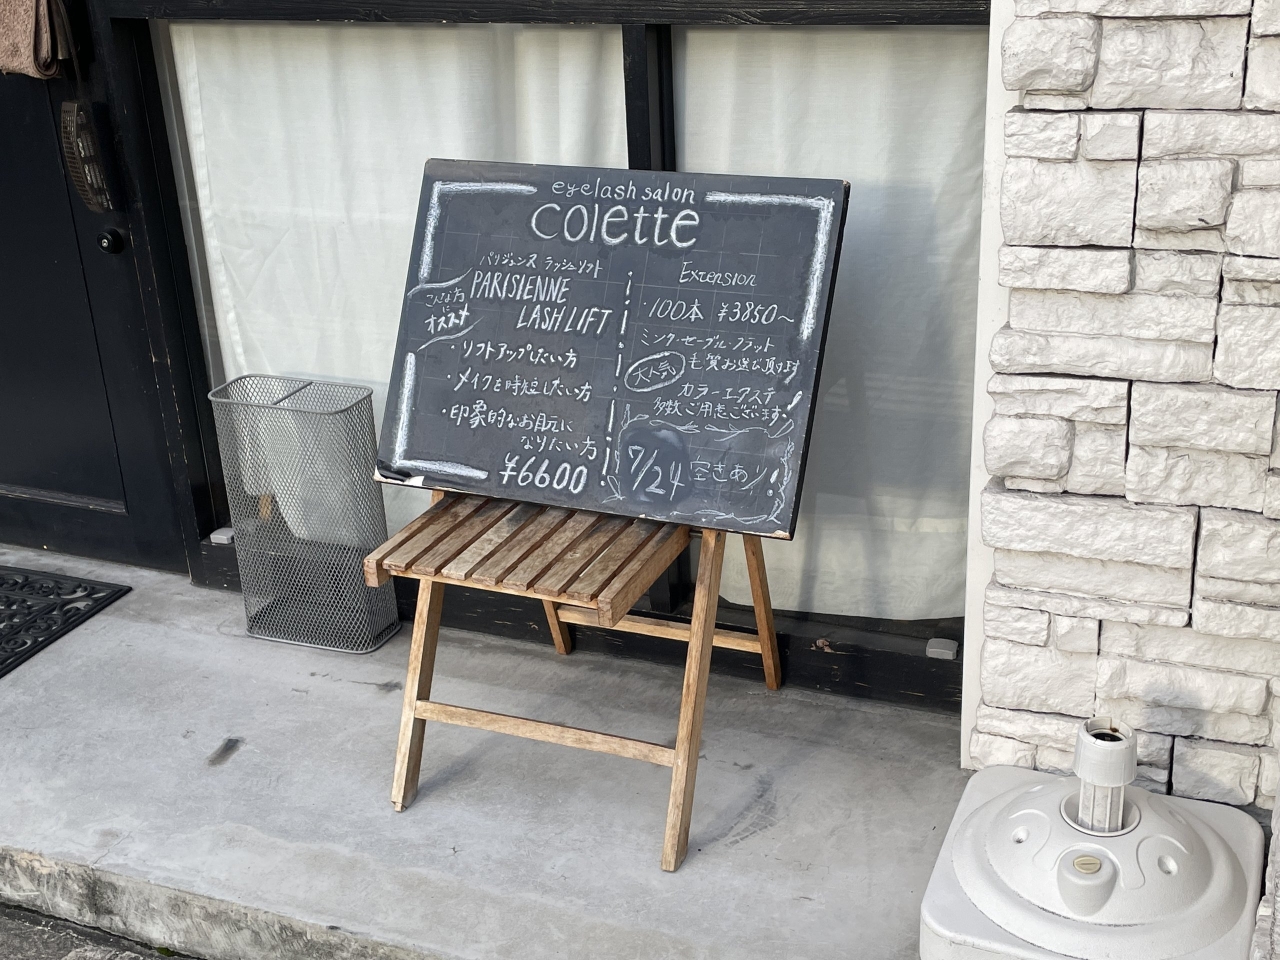 eyelash salon
colette
パリジェンヌ ラッシュリフト
PARISIENNE
LASH LIFT
こんな方
に
オススメ
・リフトアップしたい方
・メイクを時短したい方
・印象的なお目元に
なりたい方
¥6600
Extension
・100本 ¥3850〜
ミンク・セーブル・フラット
毛質お選び頂けます
大人気
カラーエクステ
多数ご用意ございます!
7/24 空きあり!